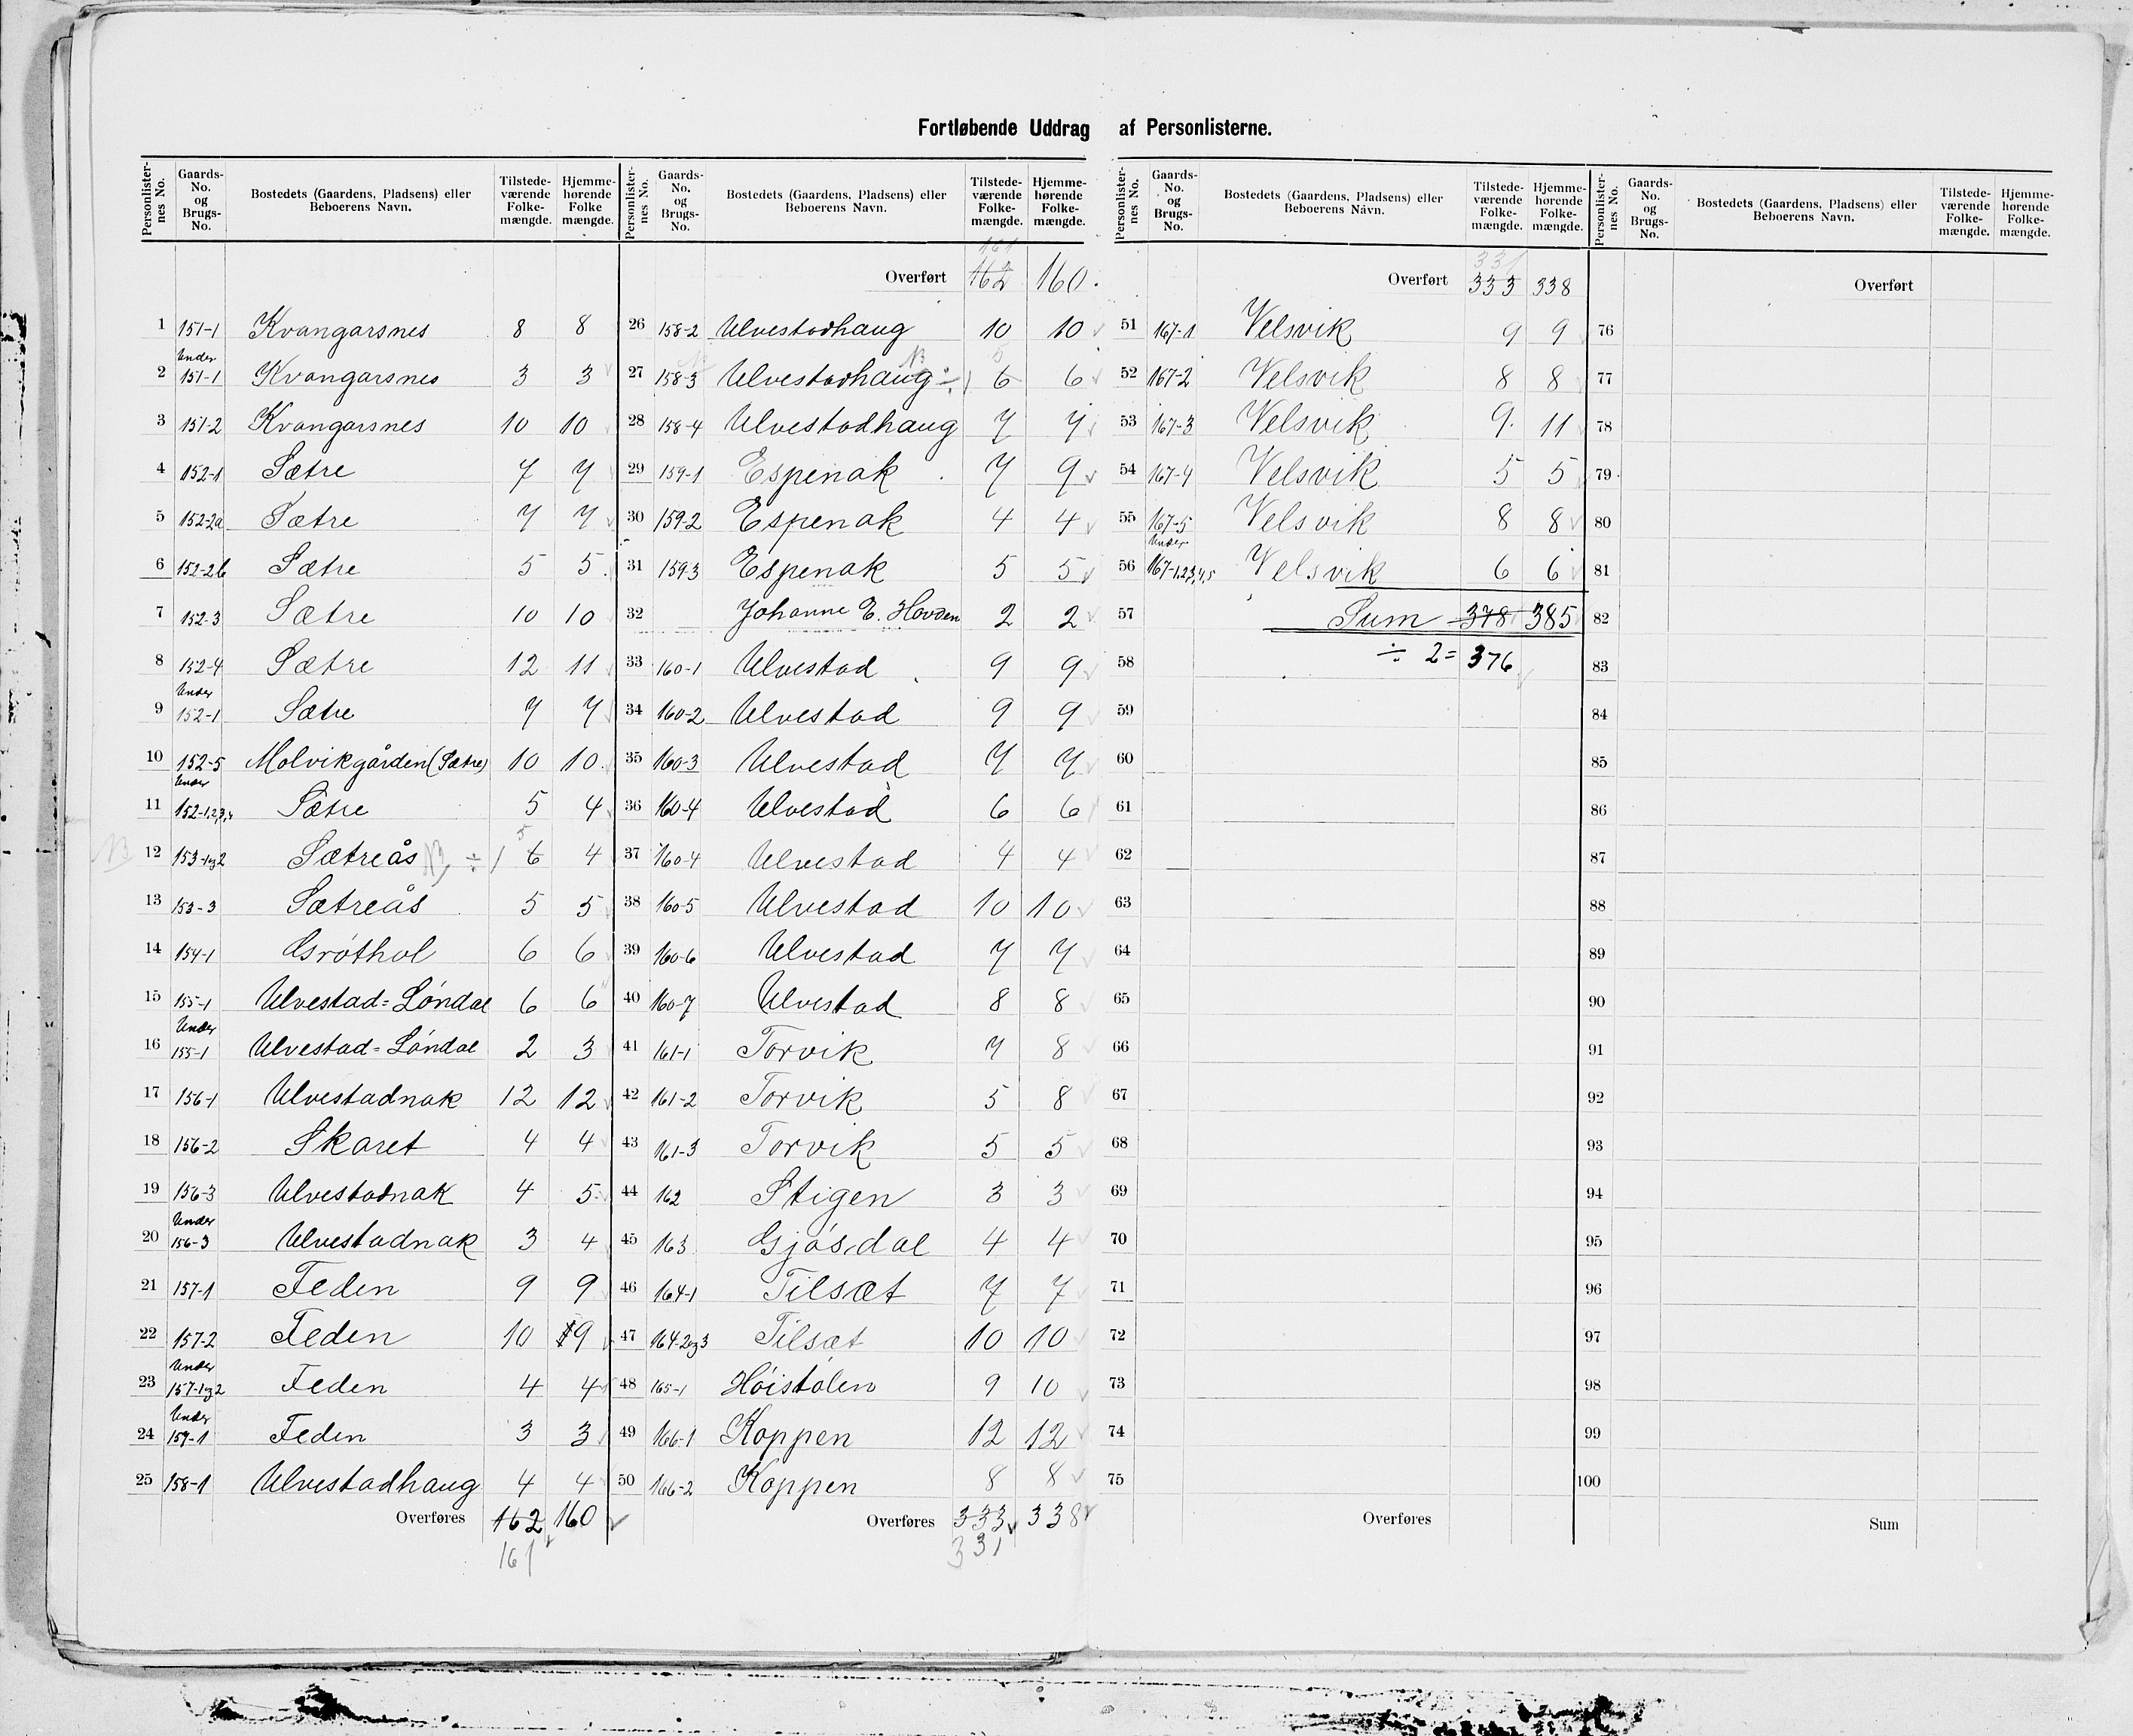 Fortløbende Uddrag af Personlisterne.
Personlisternes No. Gaards-No. og Brugs-No. Bostedets (Gaardens, Pladsens) eller Beboerens Navn. Tilstedeværende Folkemængde. Hjemmehørende Folkemængde.
1 151-1 Kvangarsnes 8 8
2 Under 151-1 Kvangarsnes 3 3
3 151-2 Kvangarsnes 10 10
4 152-1 Sætre 7 7
5 152-2a Sætre 7 7
6 152-2b Sætre 5 5
7 152-3 Sætre 10 10
8 152-4 Sætre 12 11
9 Under 152-1 Sætre 7 7
10 152-5 Molvikgården (Sætre) 10 10
11 Under 152-1,2,3,4 Sætre 5 4
NB 12 153-1og2 Sætreås NB ÷1 5 6 4
13 153-3 Sætreås 5 5
14 154-1 Grøthol 6 6
15 155-1 Ulvestad=Løndal 6 6
16 Under 155-1 Ulvestad=Løndal 2 3
17 156-1 Ulvestadnak 12 12
18 156-2 Skaret 4 4
19 156-3 Ulvestadnak 4 5
20 Under 156-3 Ulvestadnak 3 4
21 157-1 Feden 9 9
22 157-2 Feden 10 9
23 Under 157-1og2 Feden 4 4
24 Under 157-1 Feden 3 3
25 158-1 Ulvestadhaug 4 4
Overføres 162 160
161
Personlisternes No. Gaards-No. og Brugs-No. Bostedets (Gaardens, Pladsens) eller Beboerens Navn. Tilstedeværende Folkemængde. Hjemmehørende Folkemængde.
161
Overført 162 160.
26 158-2 Ulvestadhaug 10 10
27 158-3 Ulvestadhaug NB ÷1 5 6 6
28 158-4 Ulvestadhaug 7 7
29 159-1 Espenak 7 9
30 159-2 Espenak 4 4
31 159-3 Espenak 5 5
32 Johanne E. Hovden 2 2
33 160-1 Ulvestad 9 9
34 160-2 Ulvestad 9 9
35 160-3 Ulvestad 7 7
36 160-4 Ulvestad 6 6
37 160-4 Ulvestad 4 4
38 160-5 Ulvestad 10 10
39 160-6 Ulvestad 7 7
40 160-7 Ulvestad 8 8
41 161-1 Torvik 7 8
42 161-2 Torvik 5 8
43 161-3 Torvik 5 5
44 162 Stigen 3 3
45 163 Gjøsdal 4 4
46 164-1 Tilsæt 7 7
47 164-2og3 Tilsæt 10 10
48 165-1 Høistølen 9 10
49 166-1 Koppen 12 12
50 166-2 Koppen 8 8
Overføres 333 338
331
Personlisternes No. Gaards-No. og Brugs-No. Bostedets (Gaardens, Pladsens) eller Beboerens Navn. Tilstedeværende Folkemængde. Hjemmehørende Folkemængde.
331
Overført 333 338
51 167-1 Velsvik 9 9
52 167-2 Velsvik 8 8
53 167-3 Velsvik 9 11
54 167-4 Velsvik 5 5
55 167-5 Velsvik 8 8
56 Under 167-1,2,3,4,5 Velsvik 6 6
57 Sum 378 385
58 ÷ 2 = 376
59
60
61
62
63
64
65
66
67
68
69
70
71
72
73
74
75
Overføres
Personlisternes No. Gaards-No. og Brugs-No. Bostedets (Gaardens, Pladsens) eller Beboerens Navn. Tilstedeværende Folkemængde. Hjemmehørende Folkemængde.
Overført
76
77
78
79
80
81
82
83
84
85
86
87
88
89
90
91
92
93
94
95
96
97
98
99
100
Sum